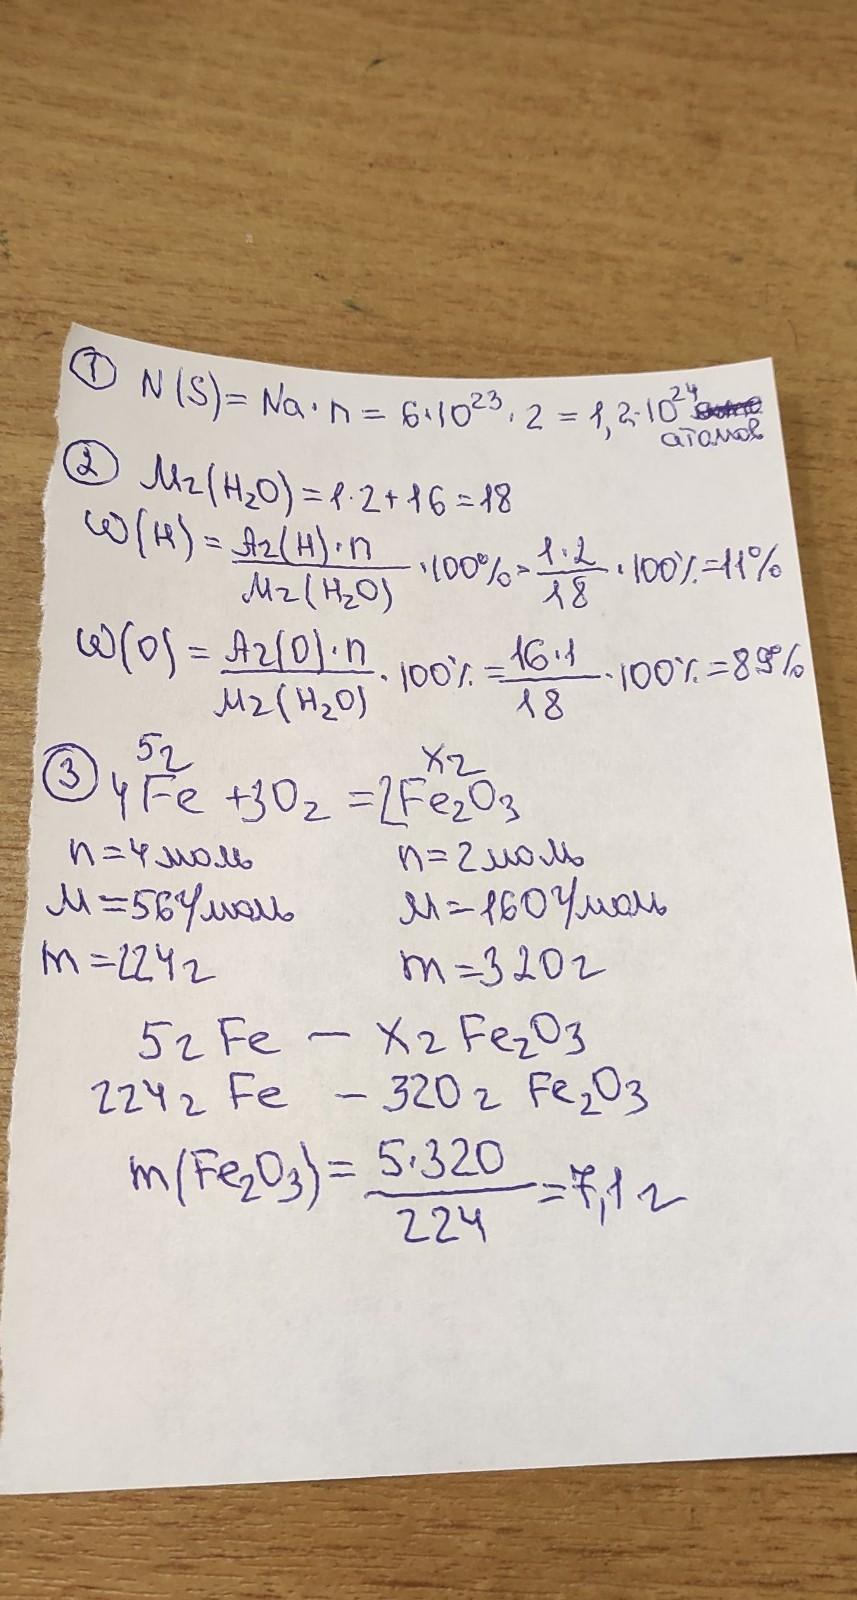 ① N(S) = Na · n = 6·10²³ · 2 = 1,2·10²⁴
атомов
② Mr(H₂O) = 1·2 + 16 = 18
W(H) = Ar(H)·n / Mr(H₂O) · 100% = 1·2 / 18 · 100% = 11%
W(O) = Ar(O)·n / Mr(H₂O) · 100% = 16·1 / 18 · 100% = 89%
5г xг
③ 4Fe + 3O₂ = 2Fe₂O₃
n = 4 моль n = 2 моль
M = 56 г/моль M = 160 г/моль
m = 224 г m = 320 г
5г Fe – xг Fe₂O₃
224г Fe – 320г Fe₂O₃
m(Fe₂O₃) = 5·320 / 224 = 7,1 г